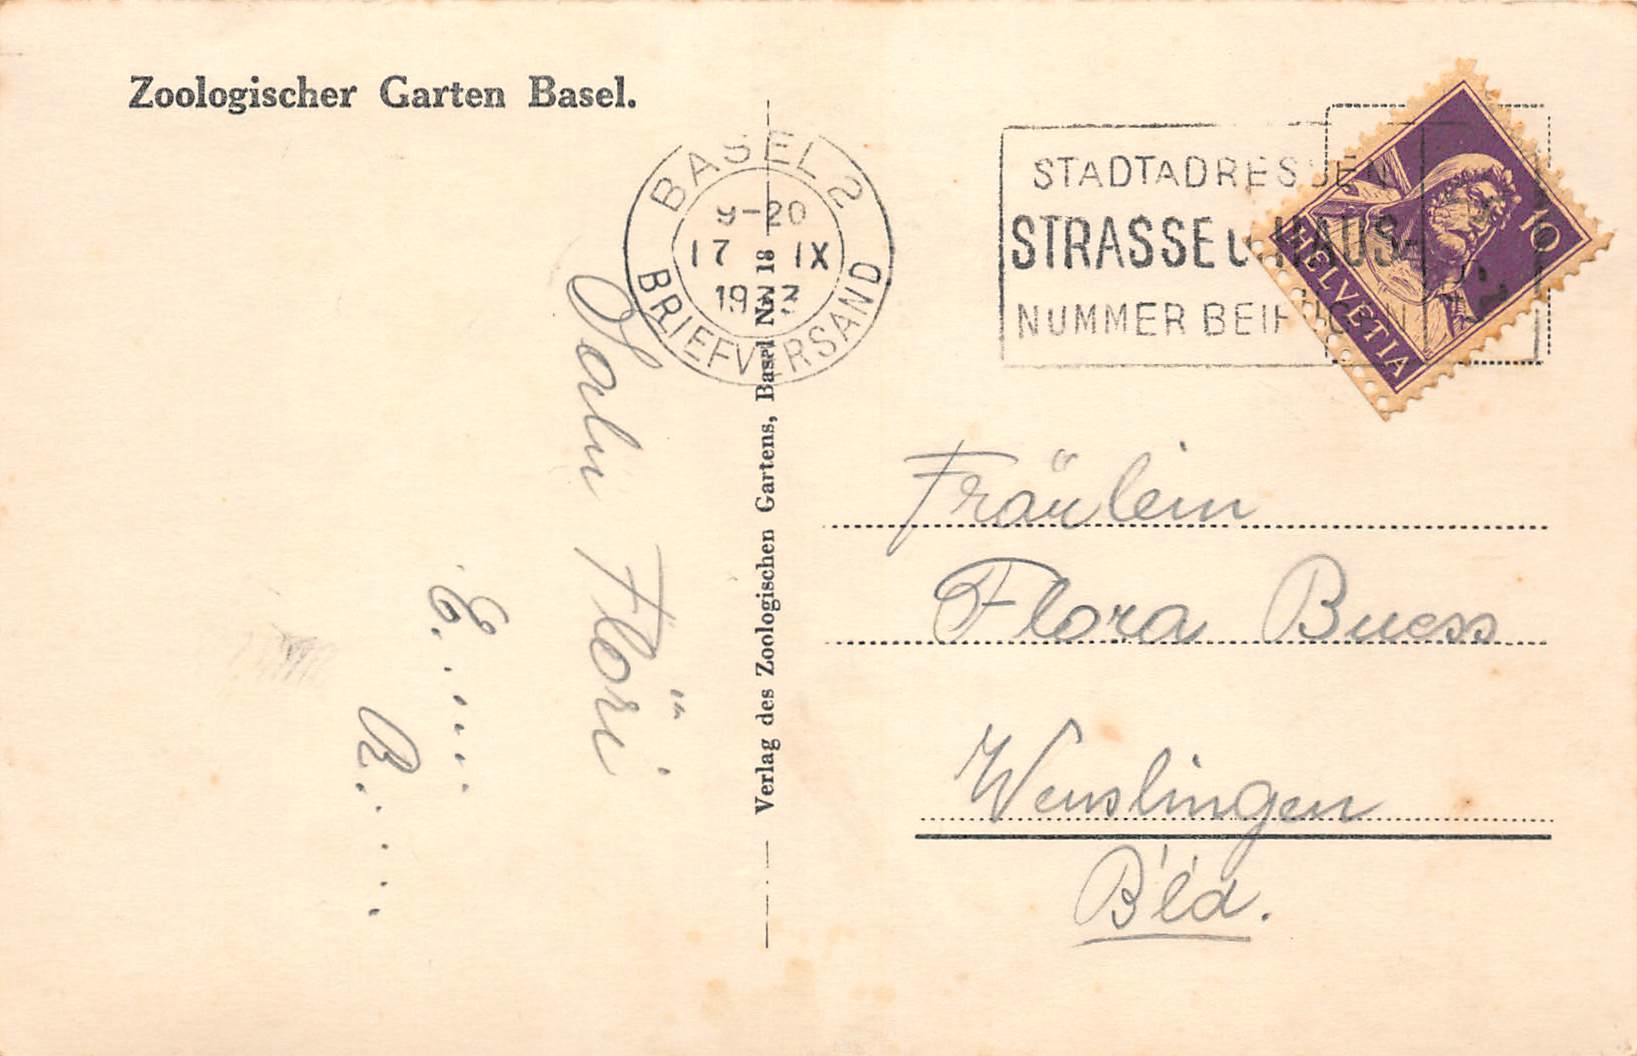 Zoologischer Garten Basel.
BASEL 2
9-20
17 IX
1933
BRIEFVERSAND
STADTADRESSEN
STRASSE U. HAUS-
NUMMER BEIFÜGEN
HELVETIA
10
Verlag des Zoologischen Gartens, Basel No. 18
Salu Flöri
E.....
B.....
Fräulein
Flora Buess
Wenslingen
B'ld.